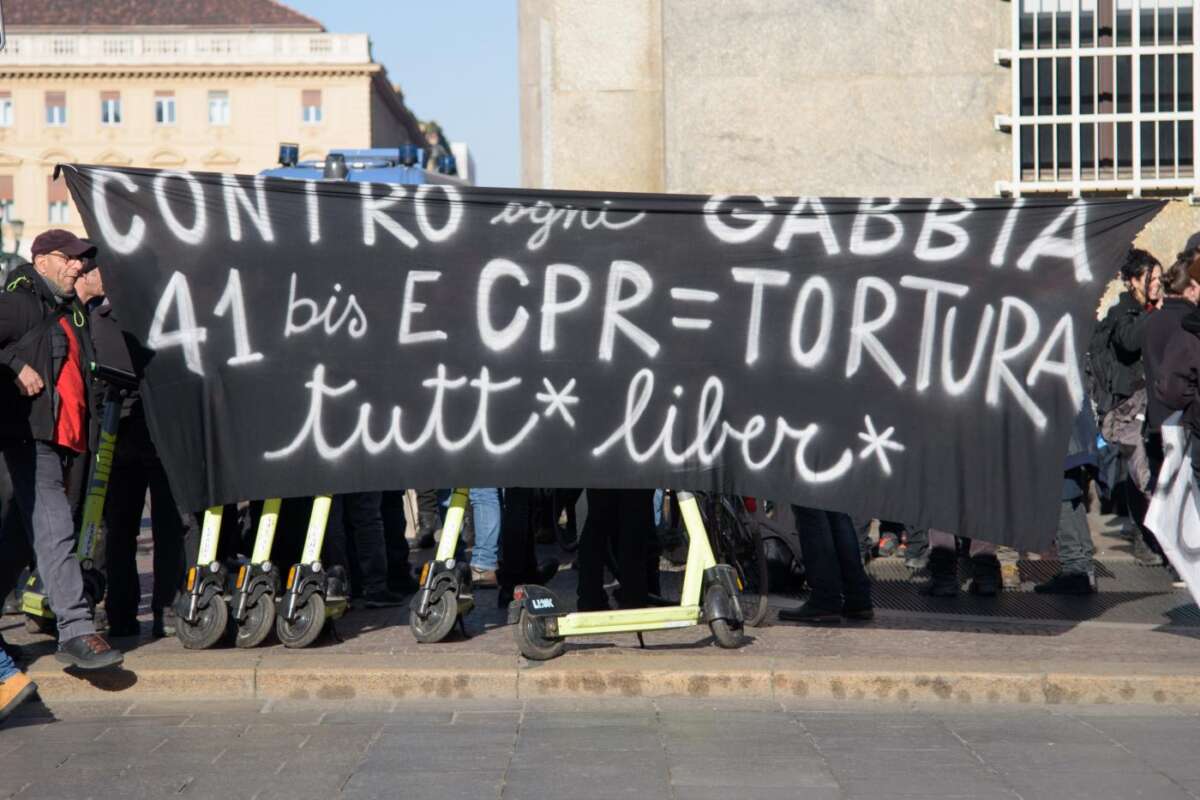 CONTRO ogni GABBIA
41 bis E CPR = TORTURA
tutt* liber*
LINK
LINK